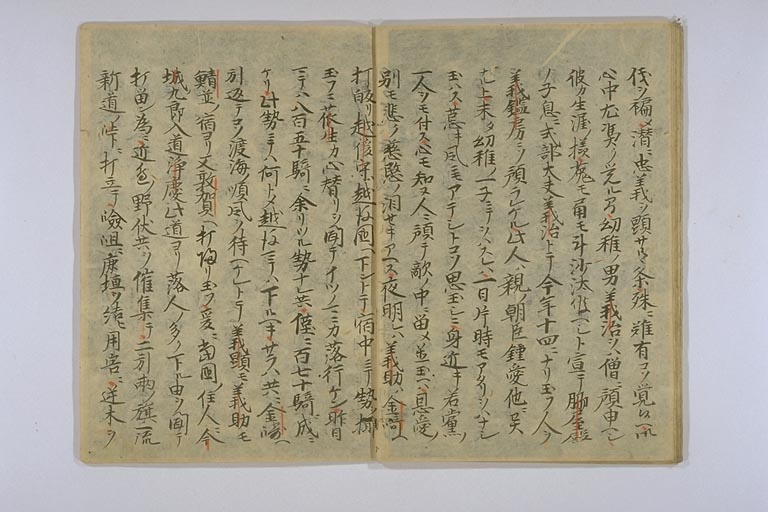 伐ヲ褊メ潜ニ忠義ヲ顕サルヽ条殊ニ難有コソ覚候
心中尤憑ク覚ル幼稚ノ男義治ヲハ僧ニ預申ヘシ
彼カ生涯ノ様兎モ角モ御沙汰候ヘシト宣テ脇屋殿
ノ子息ニ式部大夫義治トテ今年十四ニナリ玉フ人ヲ
義鑑房ニソ預ラレケル此人ハ親ノ朝臣鍾愛他ニ異
ナル上未タ幼稚ノ一子ニテヲハスレハ一日片時モアタリヲハナシ
玉ハス荒キ風ニモアテシトコソ思玉シニ身近キ若黨ノ
一人ヲモ付ス心モ知ヌ人ニ預テ敵ノ中ニ留メ並玉ヘハ恩愛ノ
別モ悲ク慈愍ノ泪サキアヘス夜明レハ義助ハ金崎ヘ
打皈リ越後守越後国ヘ下ントテ宿中ニテ勢ヲ揃
玉フニ荻生カ心替リヲ聞テイツノ間ニカ落行ケン昨日
マテハ八百五十騎ニ余リツル勢ナレ共僅ニ百七十騎ニ成ニ
ケリ此勢ニテハ何トメ越後ニテハ下ルヘキサラハ共ニ金崎ヘ
引返テコソ渡海ノ順風ヲ待ヘケレトテ義顕モ義助モ
鯖並ノ宿ヨリ又敦賀ヘ打帰リ玉フ爰ニ当国ノ住人今
城九郎入道浄慶此道ヨリ落人ノ多ク下ル由ヲ聞テ
打留ン為ニ近処ノ野伏共ヲ催集テ二引両ノ旗一流
新道ノ峠ニ打立テ嶮岨ニ鹿垣ヲ結ヒ用害ニ逆木ヲ